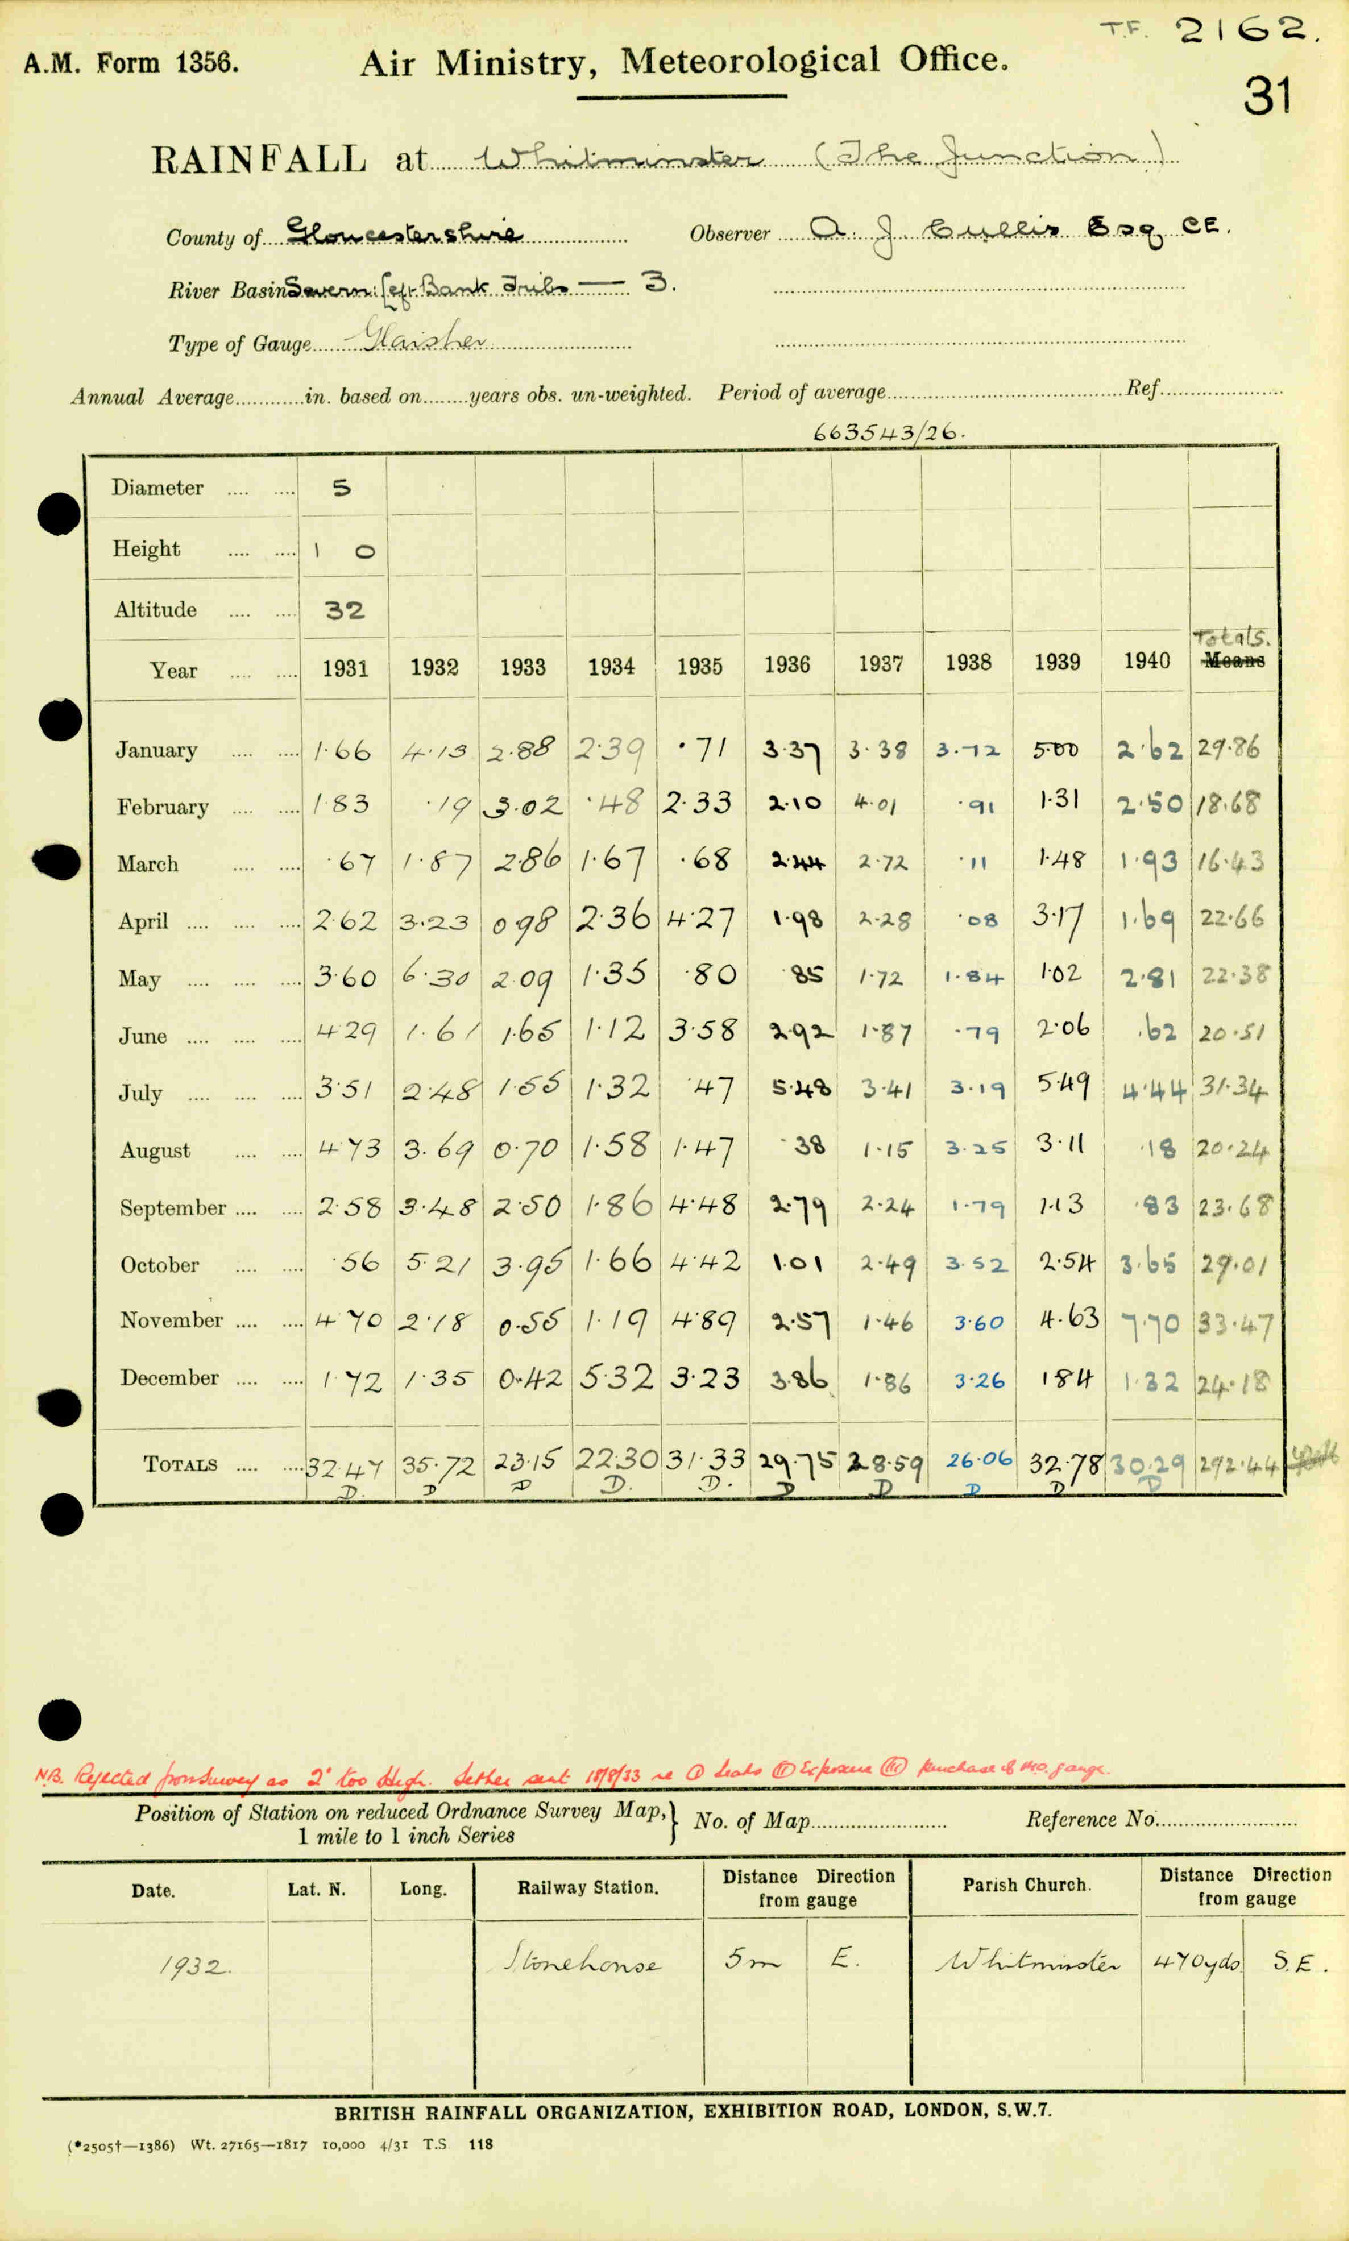 T.F. 2162.
A.M. Form 1356.
Air Ministry, Meteorological Office.
31
RAINFALL at Whitminster (The Junction)
County of Gloucestershire Observer A. J. Cullis Esq CE.
River Basin Severn: Left Bank Tribs — 3.
Type of Gauge Glaisher
Annual Average............in. based on........years obs. un-weighted. Period of average........................Ref........................
663543/26.
Diameter .... .... 5
Height .... .... 1 0
Altitude .... .... 32
Totals.
Year .... .... 1931 1932 1933 1934 1935 1936 1937 1938 1939 1940 Means
January .... .... 1.66 4.13 2.88 2.39 .71 3.37 3.38 3.72 5.00 2.62 29.86
February .... .... 1.83 .19 3.02 .48 2.33 2.10 4.01 .91 1.31 2.50 18.68
March .... .... .67 1.87 2.86 1.67 .68 2.44 2.72 .11 1.48 1.93 16.43
April .... .... .... 2.62 3.23 0.98 2.36 4.27 1.98 2.28 .08 3.17 1.69 22.66
May .... .... .... 3.60 6.30 2.09 1.35 .80 .85 1.72 1.84 1.02 2.81 22.38
June .... .... .... 4.29 1.61 1.65 1.12 3.58 2.92 1.87 .79 2.06 .62 20.51
July .... .... .... 3.51 2.48 1.55 1.32 .47 5.48 3.41 3.19 5.49 4.44 31.34
August .... .... 4.73 3.69 0.70 1.58 1.47 .38 1.15 3.25 3.11 .18 20.24
September .... .... 2.58 3.48 2.50 1.86 4.48 2.79 2.24 1.79 1.13 .83 23.68
October .... .... .56 5.21 3.95 1.66 4.42 1.01 2.49 3.52 2.54 3.65 29.01
November .... .... 4.70 2.18 0.55 1.19 4.89 2.57 1.46 3.60 4.63 7.70 33.47
December .... .... 1.72 1.35 0.42 5.32 3.23 3.86 1.86 3.26 1.84 1.32 24.18
TOTALS .... .... 32.47 35.72 23.15 22.30 31.33 29.75 28.59 26.06 32.78 30.29 292.44
D. D D D. D. D D D D D
N.B. Rejected from Survey as 2" too High. Letter sent 18/8/33 re (I) Leaks (II) Exposure (III) purchase of MO. gauge.
Position of Station on reduced Ordnance Survey Map,} No. of Map........................ Reference No.........................
1 mile to 1 inch Series
Date. Lat. N. Long. Railway Station. Distance Direction from gauge Parish Church. Distance Direction from gauge
1932. Stonehouse 5m E. Whitminster 470yds S.E.
BRITISH RAINFALL ORGANIZATION, EXHIBITION ROAD, LONDON, S.W.7.
(*2505†—1386) Wt. 27165—1817 10,000 4/31 T.S 118